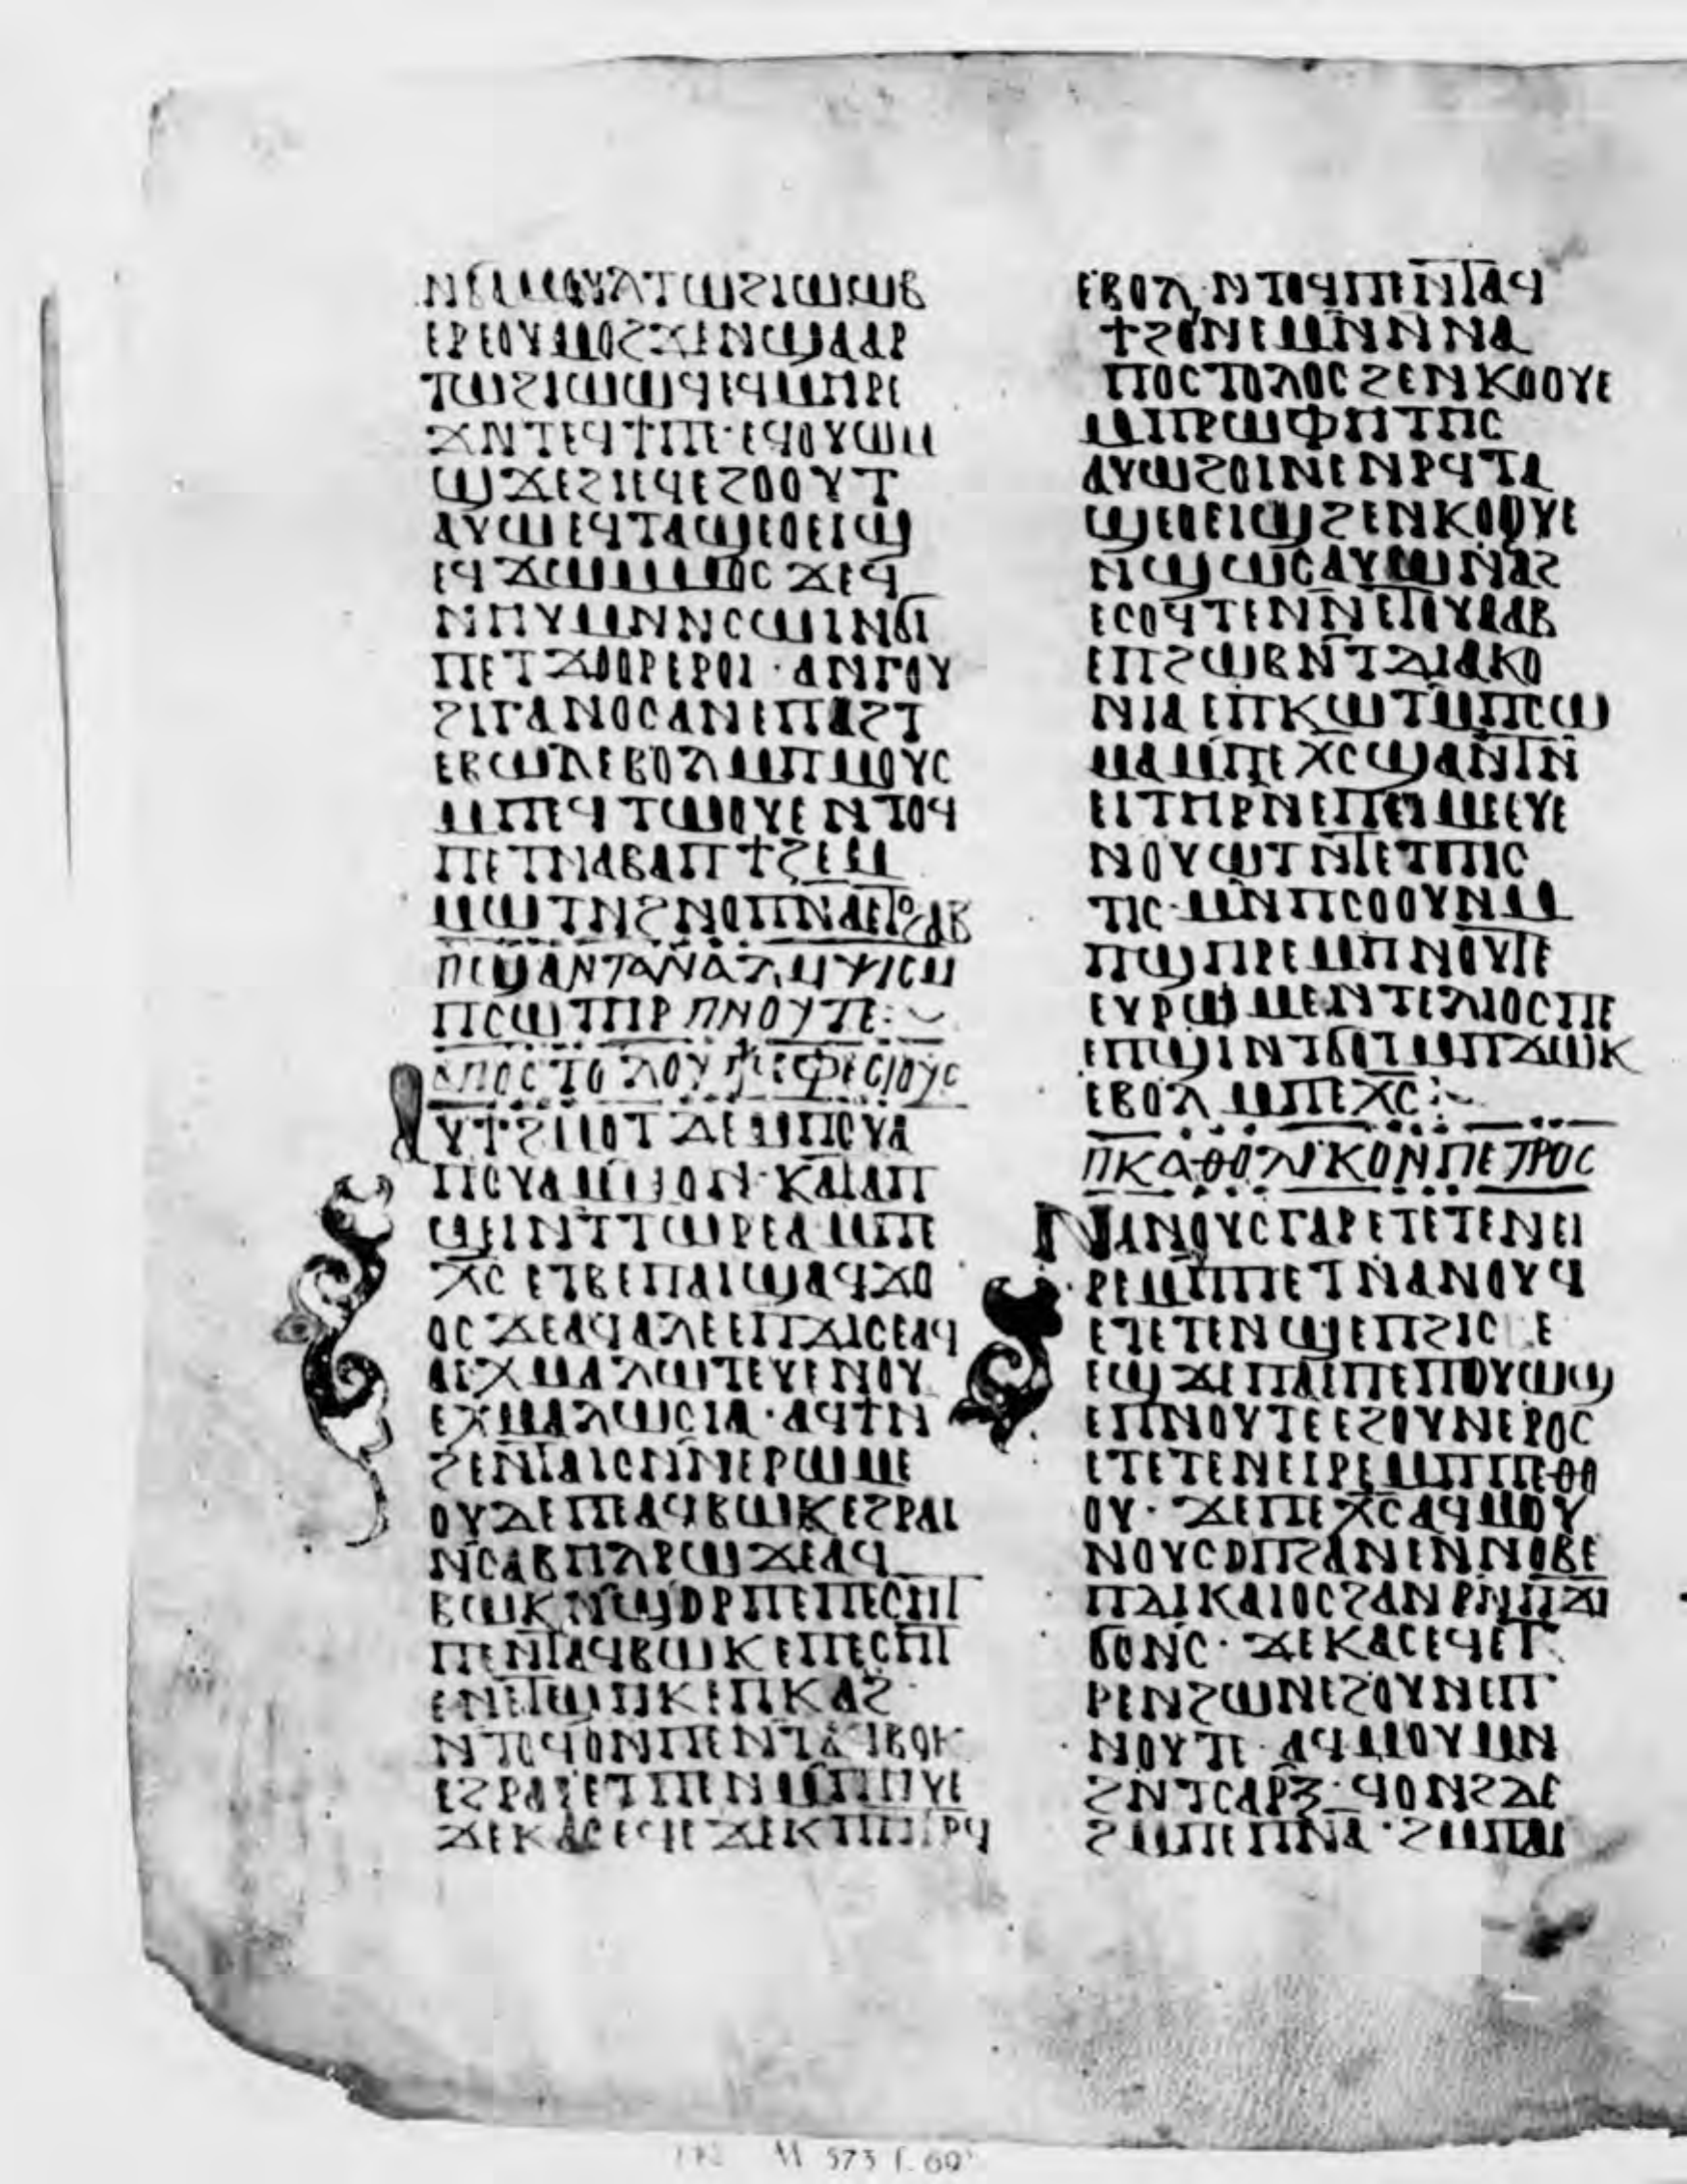 ⲉⲣⲉⲟⲩⲙⲟϩϫⲉⲛϣⲁⲁⲣ
ⲧⲱϩⲓⲱⲱϥⲉϥⲙⲏⲣⲉ
ϫⲛⲧⲉϥϯⲡⲉ·ⲉϥⲟⲩⲱⲙ
ϣϫⲉϩⲓⲉϥⲉϩⲟⲟⲩⲧ
ⲁⲩⲱⲉϥⲧⲁϣⲉⲟⲉⲓϣ
ⲉϥϫⲱⲙⲙⲟⲥϫⲉϥ
ⲛⲏⲩⲙⲛⲛⲥⲱⲓⲛϭⲓ
ⲡⲉⲧϫⲟⲟⲣⲉⲣⲟⲓ·ⲁⲛⲅⲟⲩ
ϩⲓⲅⲁⲛⲟⲥⲁⲛⲉⲡⲁϩⲧ
ⲉⲃⲱⲗⲉⲃⲟⲗⲙⲡⲙⲟⲩⲥ
ⲙⲡⲉϥⲧⲱⲟⲩⲉⲛⲧⲟϥ
ⲡⲉⲧⲛⲁⲃⲁⲡϯⲍⲉⲙ
ⲙⲱⲧⲛϩⲛⲟⲩⲡ̅ⲛ̅ⲁ̅ⲉϥⲟⲩⲁⲁⲃ
ⲡϣⲁⲛⲧⲁⲛⲁⲗⲏⲙⲯⲓⲥⲙ
ⲡⲥⲱⲧⲏⲣⲡⲛⲟⲩⲧⲉ:
ⲁⲡⲟⲥⲧⲟⲗⲟⲩ ⲡⲣⲉⲫⲉⲥⲓⲟⲩⲥ
ⲁⲩϯϩⲙⲟⲧⲇⲉⲙⲡⲟⲩⲁ
ⲡⲟⲩⲁⲙⲙⲟⲛ·ⲕⲁⲧⲁⲡ
ϣⲓⲛⲧⲧⲱⲣⲉⲁⲙⲡⲉ
ⲭ̅ⲥ̅ ⲉⲧⲃⲉⲡⲁⲓϣⲁϥϫⲟ
ⲟⲥϫⲉⲁϥⲁⲗⲉⲉⲡϫⲓⲥⲉⲁϥ
ⲁⲓⲭⲙⲁⲗⲱⲧⲉⲩⲉⲛⲟⲩ
ⲉⲭⲙⲁⲗⲱⲥⲓⲁ·ⲁϥϯⲛ
ϩⲉⲛⲧⲁⲓⲟⲛⲛⲉⲣⲱⲙⲉ
ⲟⲩⲇⲉⲡⲉⲁϥⲃⲱⲕⲉϩⲣⲁⲓ
ⲛⲥⲁⲃⲏⲗⲣⲱϫⲉⲁϥ
ⲃⲱⲕⲛϣⲟⲣⲡⲉⲡⲉⲥⲏⲧ
ⲡⲉⲛⲧⲁϥⲃⲱⲕⲉⲡⲉⲥⲏⲧ
ⲉⲛⲉⲧϣⲏⲕⲉⲡⲕⲁϩ
ⲛⲧⲟϥⲟⲛⲡⲉⲛⲧⲁϥⲃⲱⲕ
ⲉϩⲣⲁⲓⲉⲧⲡⲉⲛⲙⲡⲏⲩⲉ
ϫⲉⲕⲁⲥⲉϥⲉϫⲉⲕⲡⲧⲏⲣϥ
ⲉⲃⲟⲗ·ⲛⲧⲟϥⲡⲉⲛⲧⲁϥ
ϯϩⲟⲓⲛⲉⲙⲛⲛⲛⲁ
ⲡⲟⲥⲧⲟⲗⲟⲥϩⲉⲛⲕⲟⲟⲩⲉ
ⲙⲡⲣⲱⲫⲏⲧⲏⲥ
ⲁⲩⲱϩⲟⲓⲛⲉⲛⲣϥⲧⲁ
ϣⲉⲟⲉⲓϣϩⲉⲛⲕⲟⲟⲩⲉ
ⲛϣⲱⲥⲁⲩⲱⲛⲥⲁϩ
ⲉⲥⲟϥⲧⲉⲛⲛⲉⲧⲟⲩⲁⲁⲃ
ⲉⲡϩⲱⲃⲛⲧⲇⲓⲁⲕⲟ
ⲛⲓⲁⲉⲡⲕⲱⲧⲙⲡⲥⲱ
ⲙⲁⲙⲡⲉⲭ̅ⲥ̅ϣⲁⲛⲧⲛ
ⲉⲓⲧⲏⲣⲛⲉⲡⲉⲓⲙⲉⲉⲩⲉ
ⲛⲟⲩⲱⲧⲛⲧⲉⲧⲡⲓⲥ
ⲧⲓⲥ·ⲙⲛⲡⲥⲟⲟⲩⲛⲙ
ⲡϣⲏⲣⲉⲙⲡⲛⲟⲩⲧⲉ
ⲉⲩⲣⲱⲙⲉⲛⲧⲉⲗⲓⲟⲥⲡⲉ
ⲉⲡϣⲓⲛⲧϭⲟⲧⲙⲡϫⲱⲕ
ⲉⲃⲟⲗⲙⲡⲉⲭ̅ⲥ̅:
ⲡⲕⲁⲑⲟⲗⲓⲕⲟⲛⲡⲉⲧⲣⲟⲥ
ⲛⲁⲛⲟⲩⲥⲅⲁⲣⲉⲧⲉⲧⲉⲛⲉⲓ
ⲣⲉⲙⲡⲡⲉⲧⲛⲁⲛⲟⲩϥ
ⲉⲧⲉⲧⲉⲛϣⲉⲡϩⲓⲥ ⲉ
ⲉϣϫⲉⲡⲁⲓⲡⲉⲡⲟⲩⲱϣ
ⲉⲡⲛⲟⲩⲧⲉⲉϩⲟⲩⲛⲉⲣⲟⲥ
ⲉⲧⲉⲧⲉⲛⲉⲓⲣⲉⲙⲡⲡⲉⲑⲟ
ⲟⲩ·ϫⲉⲡⲉⲭ̅ⲥ̅ⲁϥⲙⲟⲩ
ⲛⲟⲩⲥⲟⲡϩⲁⲛⲉⲛⲛⲟⲃⲉ
ⲡⲇⲓⲕⲁⲓⲟⲥϩⲁⲛⲣⲛⲡϫⲓ
ϭⲟⲛⲥ·ϫⲉⲕⲁⲥⲉϥⲉⲧ
ⲣⲉⲛϩⲱⲛⲉϩⲟⲩⲛⲉⲡ
ⲛⲟⲩⲧⲉ·ⲁϥⲙⲟⲩⲙⲛ
ϩⲛⲧⲥⲁⲣⲝ·ϥⲟⲛϩⲇⲉ
ϩⲙⲡⲉⲡ̅ⲛ̅ⲁ̅·ϩⲙⲡⲁⲓ